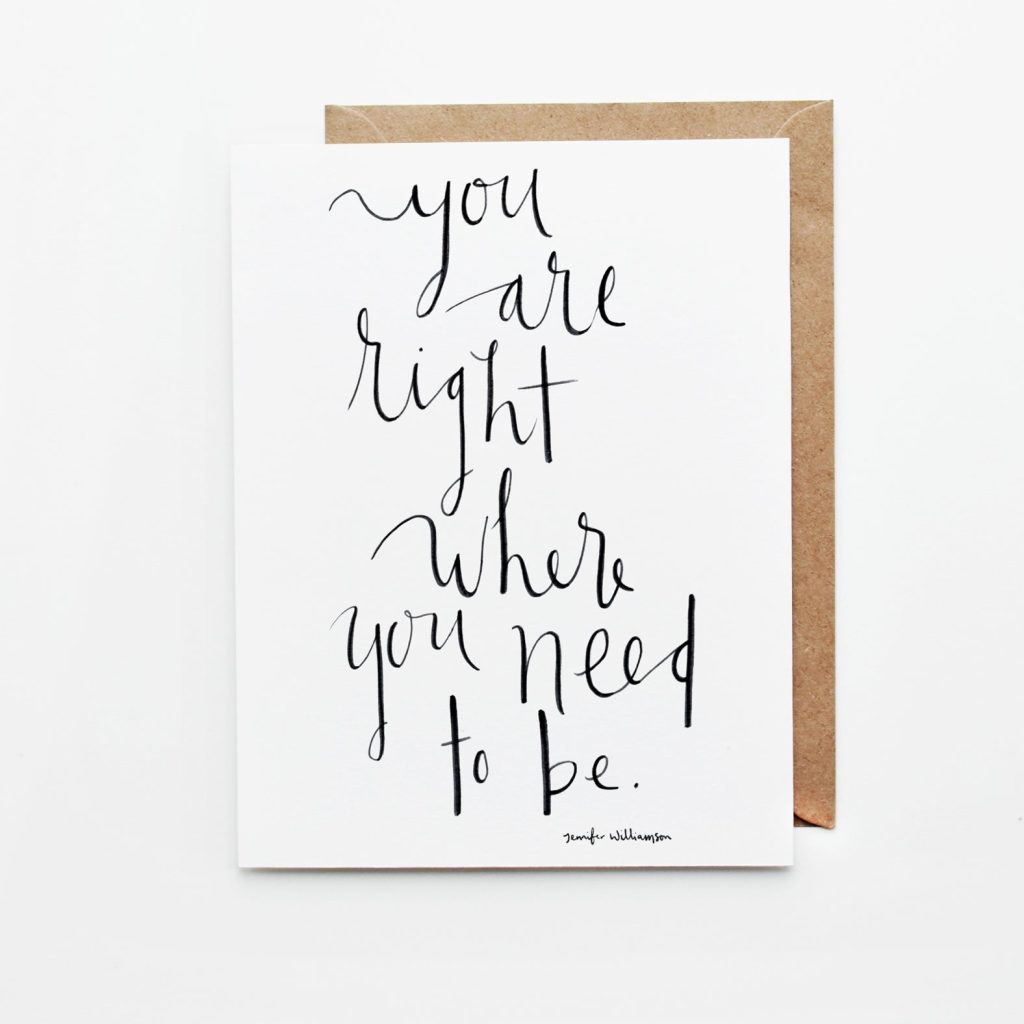 you
are
right
where
you need
to be.
Jennifer Williamson